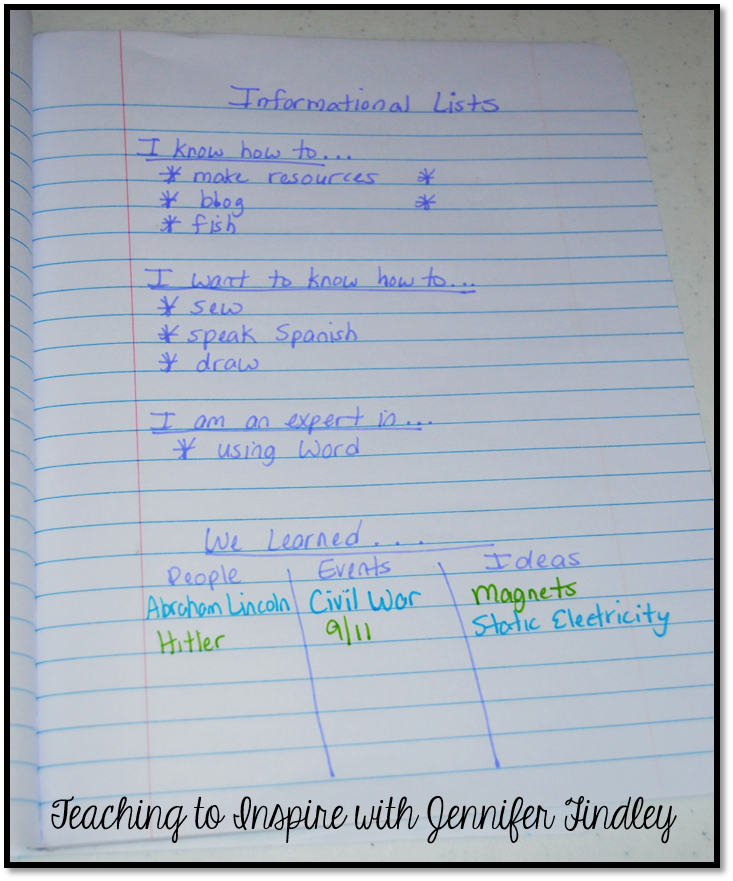 Informational Lists
I know how to...
* make resources *
* blog *
* fish
I want to know how to...
* sew
* speak Spanish
* draw
I am an expert in...
* using Word
We Learned...
People Events Ideas
Abraham Lincoln Civil War Magnets
Hitler 9/11 Static Electricity
Teaching to Inspire with Jennifer Findley